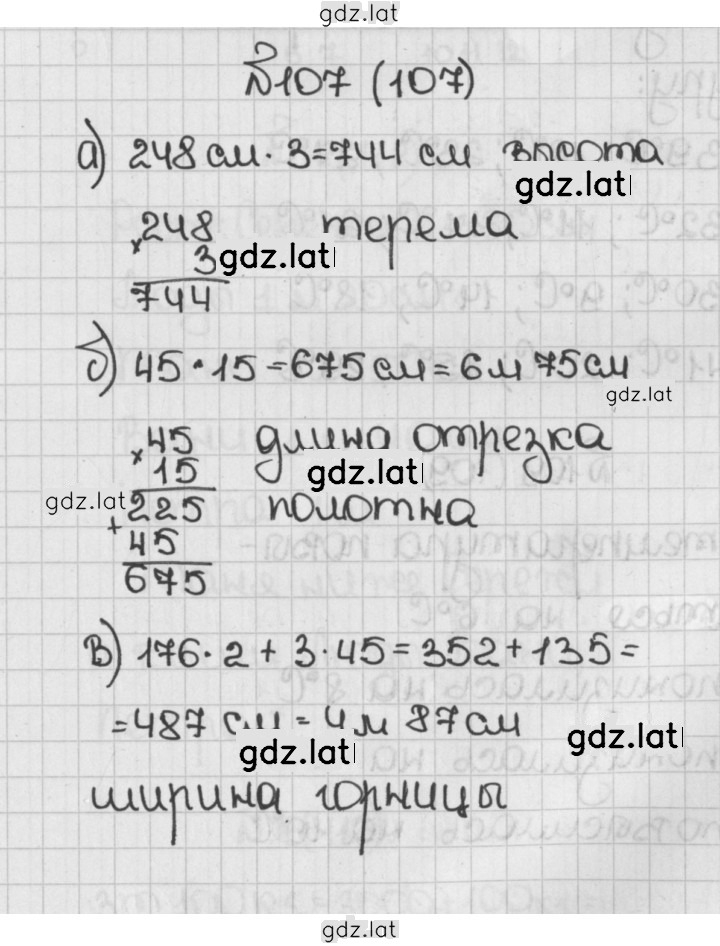 gdz.lat
№107 (107)
а) 248 см · 3 = 744 см высота
gdz.lat
× 248 терема
3 gdz.lat
744
б) 45 · 15 = 675 см = 6 м 75 см
gdz.lat
× 45 длина отрезка
15 gdz.lat
gdz.lat 225 полотна
+ 45
675
в) 176 · 2 + 3 · 45 = 352 + 135 =
= 487 см = 4 м 87 см
gdz.lat gdz.lat
ширина горницы
gdz.lat